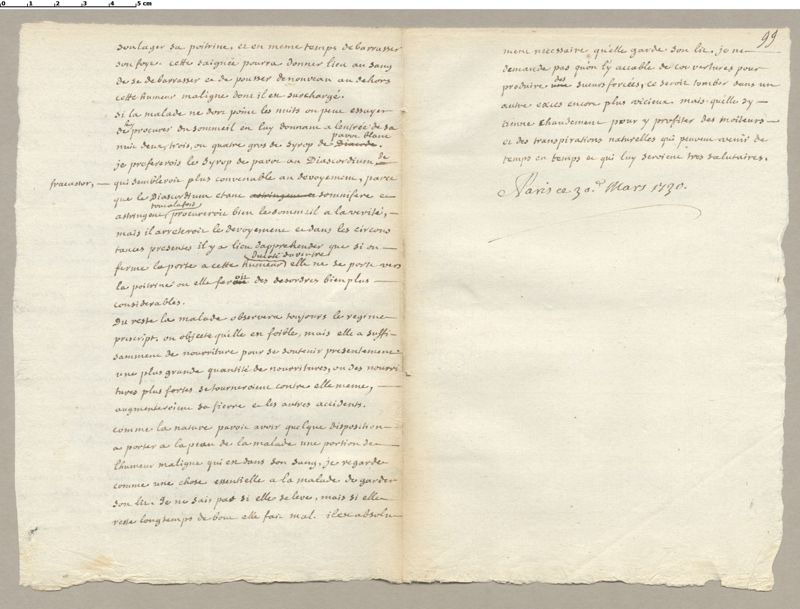 soulager sa poitrine, et en meme temps debarrasser
son foye. cette saignée pourra donner lieu au sang
de se debarrasser et de pousser denouveau au dehors
cette humeur maligne dont il est surchargé.
si la malade ne dort point les nuits on peut essayer
de luy procurer du sommeil en luy donnant a lentrée de sa
nuit deux, trois, ou quatre gros de syrop de Diacode. pavot blanc
je prefererois le syrop de pavot au Diascordium de
fracastor, qui sembleroit plus convenable au devoyement, parce
que le Diascordium etant astringent et somnifere et
astringent toutalafois procureroit bien le sommeil a la verité,
mais il arreteroit le devoyement et dans les circons
tances presentes il y a lieu dapprehender que si on
ferme la porte a cette humeur du coté du ventre elle ne se porte vers
la poitrine ou elle feroit des desordres bien plus
considerables.
Du reste la malade observera toujours le regime
prescript. on objecte quelle est foible, mais elle a suffi-
samment de nourriture pour se soutenir presentement
une plus grande quantité de nourritures, ou des nourri
tures plus fortes se tourneroient contre elle meme,
augmenteroient sa fievre et les autres accidents.
comme la nature paroit avoir quelque disposition
a porter a la peau de la malade une portion de
lhumeur maligne qui est dans son sang, je regarde
comme une chose essentielle a la malade de garder
son lit. Je ne sais pas si elle se leve, mais si elle
reste longtemps de bout elle fait mal. il est absolu-
99
ment necessaire qu'elle garde son lit. je ne
demande pas qu'on l'y accable de couvertures pour
produire des sueurs forcées, ce seroit tomber dans un
autre exces encore plus vicieux. mais qu'elle s'y
tienne chaudement pour y profiter des moiteurs
et des transpirations naturelles qui peuvent venir de
temps en temps et qui luy seroient tres salutaires.
Paris ce 30.e Mars 1730.
0 1 2 3 4 5 cm